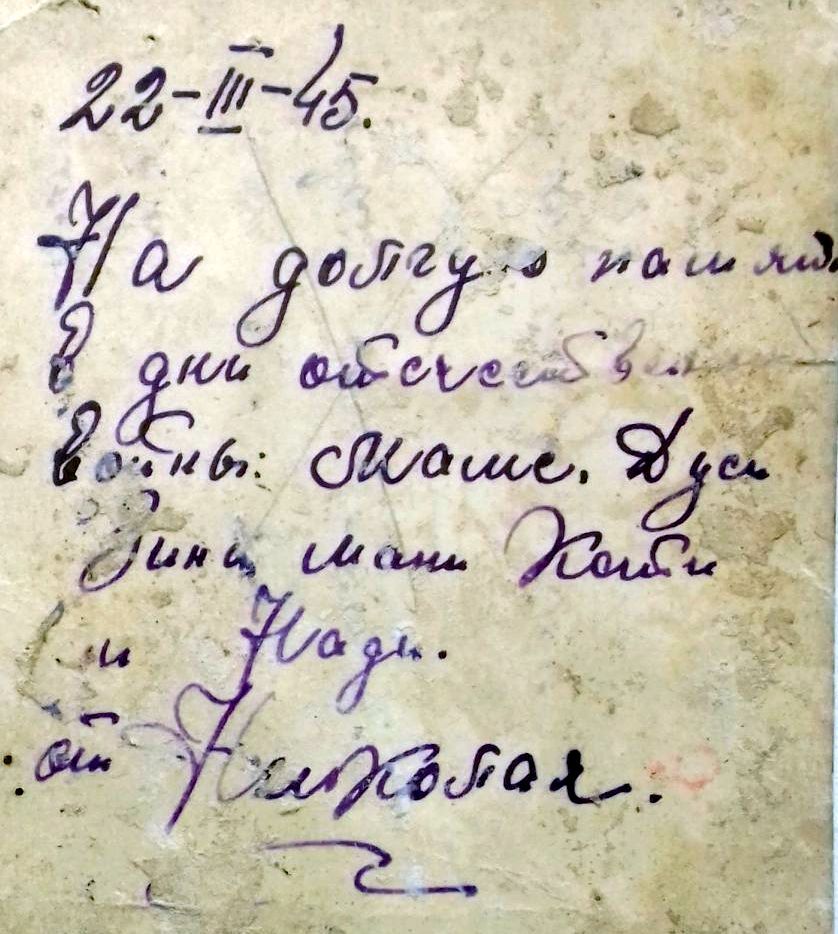 22-III-45.
На долгую память
В дни отечественной
войны: Маме. Дуси
Зини мани Кати
и Нади.
от Николая.